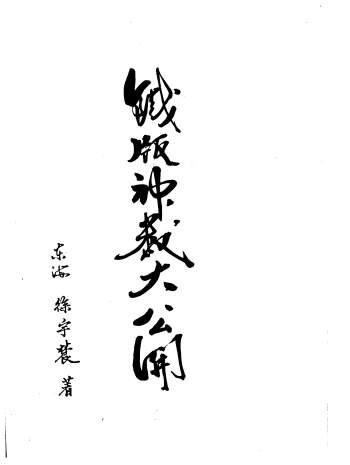 鐵版神數大公開
东海 徐宇辳 著